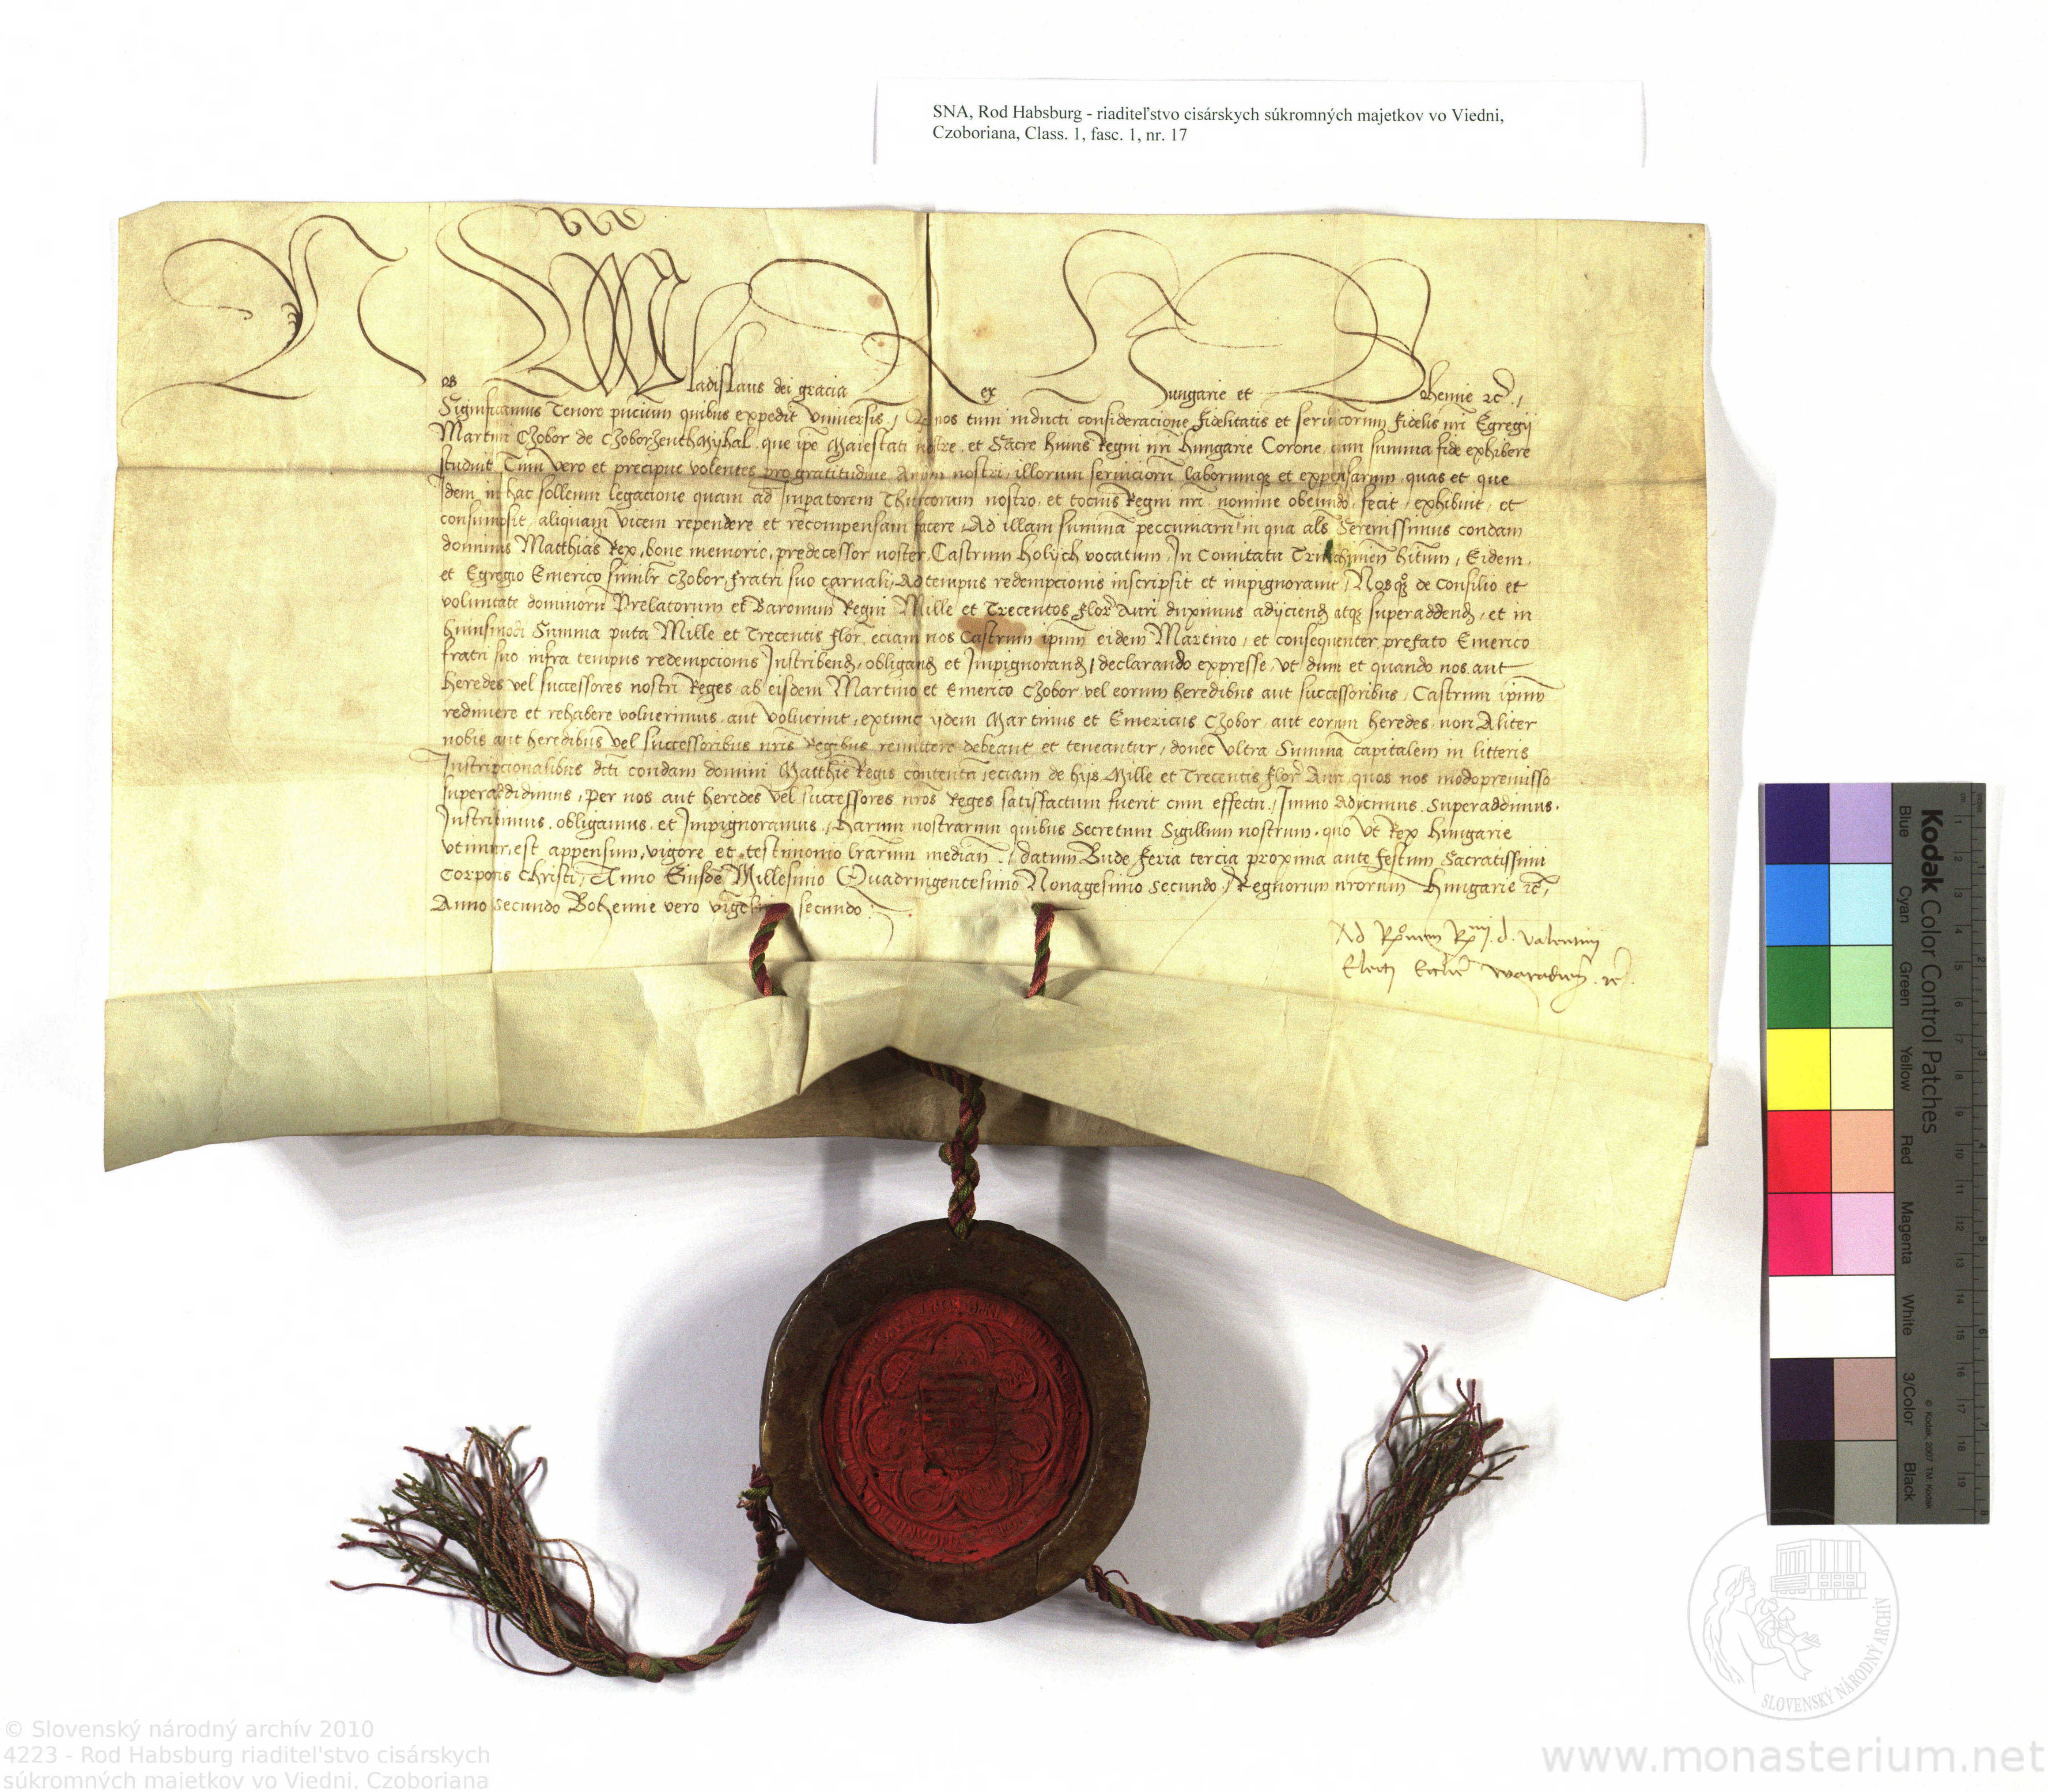 SNA, Rod Habsburg - riaditeľstvo cisárskych súkromných majetkov vo Viedni,
Czoboriana, Class. 1, fasc. 1, nr. 17
Nos Wladislaus dei gracia Rex Hungarie et Bohemie rc̃.
Significamus Tenore pñcium quibus expedit vniuersis, Q nos tum inducti consideracione fidelitatis et seruiciorum fidelis nri Egregij
Martini Czobor de Czoborzenthmyhal, que ipe Maiestati nostre, et Sacre huius Regni nri Hungarie Corone, cum summa fide exhibere
studuit, Tum vero et precipue volentes pro gratitudine Animi nostri, illorum seruiciorum laborumq et expensarum, quas et que
Idem in hac sollemni legacione quam ad Impatorem Thurcorum nostro, et tocius Regni nri nomine obeundo, fecit, exhibuit, et
consumpsit, aliquam vicem rependere et recompensam facere, Ad illam summam peccuniarum in qua als Serenissimus condam
dominus Matthias Rex, bone memorie, predecessor noster, Castrum Holych vocatum, In Comitatu Trinchinien hitum, Eidem,
et Egregio Emerico similr Czobor, fratri suo carnali, Ad tempus redempcionis inscripsit et impignorauit, Nosq de Consilio et
voluntate dominorum Prelatorum et Baronum Regni Mille et Trecentos flor Auri duximus adijciend atq superaddend, et in
huiusmodi Summa puta Mille et Trecentis flor, eciam nos Castrum ipm eidem Martino, et consequenter prefato Emerico
fratri suo infra tempus redempcionis Inscribend, obligand et Impignorand, declarando expresse, vt dum et quando nos aut
heredes vel successores nostri Reges ab eisdem Martino et Emerico Czobor vel eorum heredibus aut successoribus, Castrum ipm
redimere et rehabere voluerimus, aut voluerint, extunc ijdem Martinus et Emericus Czobor, aut eorum heredes, non Aliter
nobis aut heredibus vel successoribus nris Regibus remittere debeant et teneantur, donec vltra Summam capitalem in litteris
Inscripcionalibus dcti condam domini Matthie Regis contentam, eciam de hijs Mille et Trecentis flor Auri, quos nos modopremisso
superaddidimus, per nos aut heredes vel successores nros Reges satisfactum fuerit cum effectu, Immo Adijcimus, Superaddimus,
Inscribimus, obligamus, et Impignoramus, Harum nostrarum quibus Secretum Sigillum nostrum, quo vt Rex Hungarie
vtimur, est appensum, vigore et testimonio lrarum median. datum Bude, feria tercia proxima ante festum Sacratissimi
Corporis Christi, Anno Eiusdem Millesimo Quadringentesimo Nonagesimo Secundo, Regnorum nrorum Hungarie rc̃,
Anno secundo Bohemie vero secundo
Ad Rd. Valentini
Electi Ecclie Waradien rc̃.
Kodak Color Control Patches
Blue Cyan Green Yellow Red Magenta White 3/Color Black
© Kodak, 2007 TM: Kodak
SLOVENSKÝ NÁRODNÝ ARCHÍV
© Slovenský národný archív 2010
4223 - Rod Habsburg riaditel'stvo cisárskych
súkromných majetkov vo Viedni, Czoboriana
www.monasterium.net